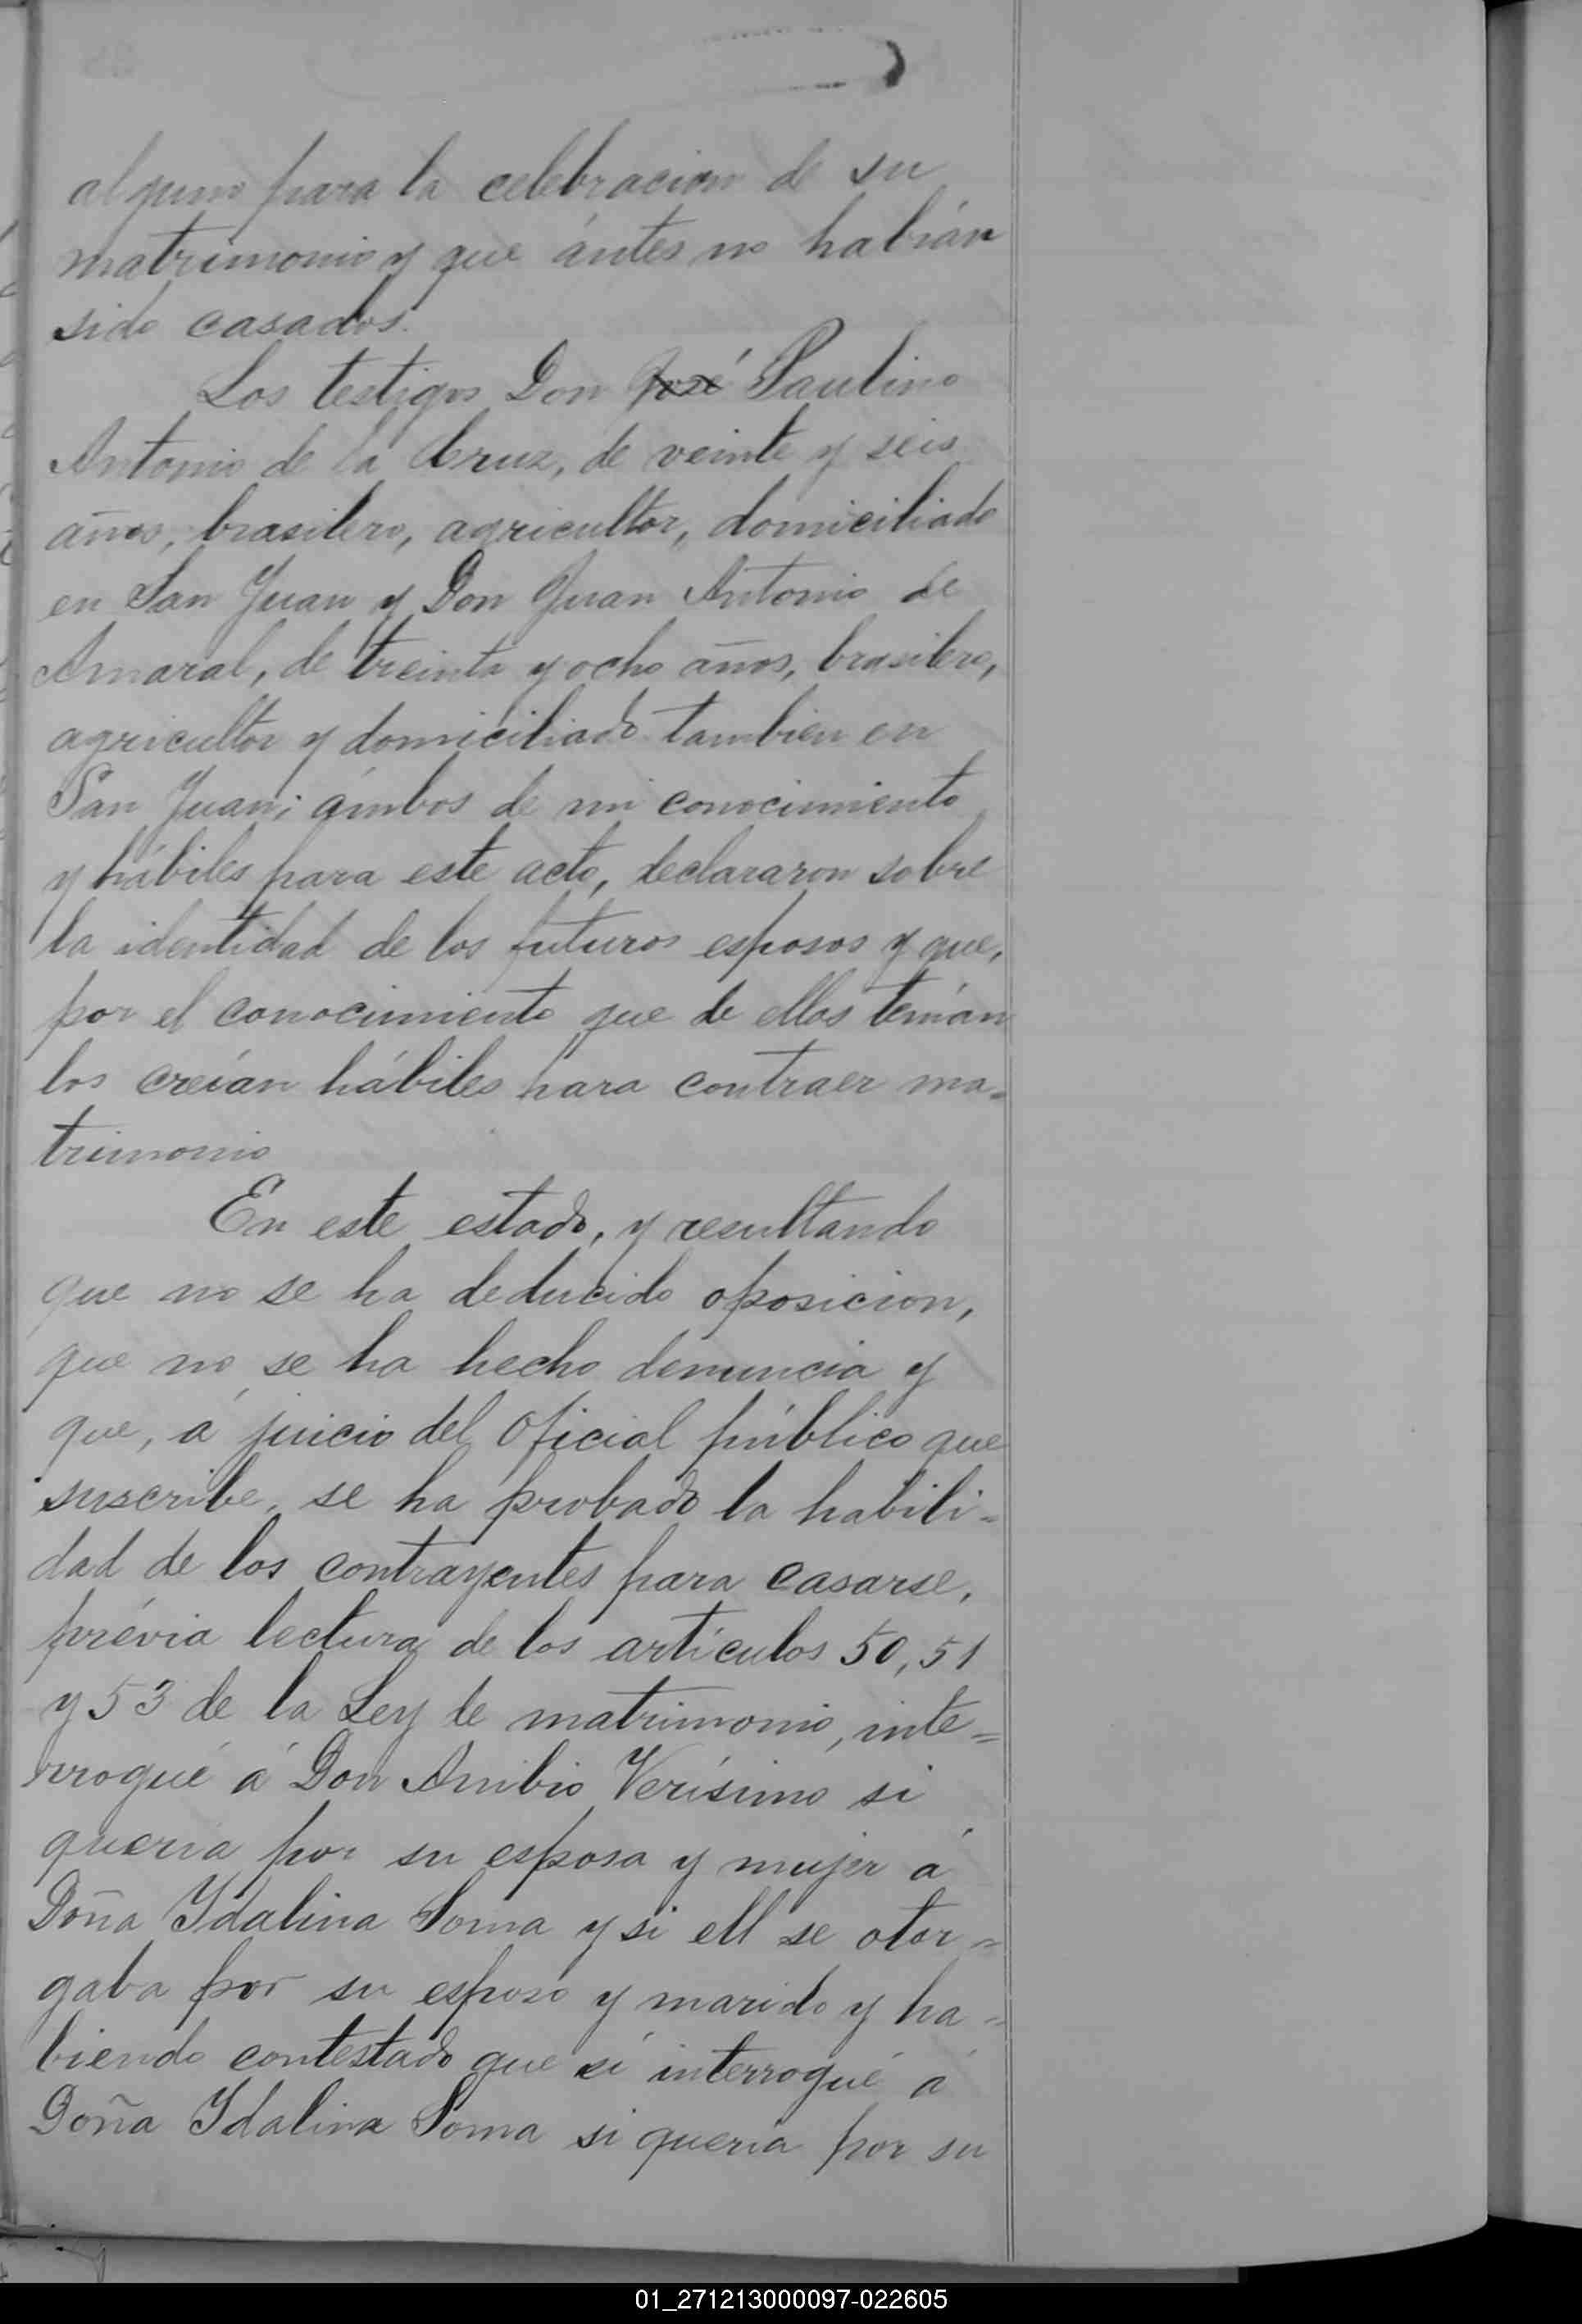 alguno para la celebracion de su
matrimonio y que ántes no habián
sido casados.
Los testigos Don José Paulino
Antonio de la Cruz, de veinte y seis
años, brasilero, agricultor, domiciliado
en San Juan y Don Juan Antonio de
Amaral, de treinta y ocho años, brasilero,
agricultor y domiciliado tambien en
San Juan; ámbos de mi conocimiento
y hábiles para este acto, declararon sobre
la identidad de los futuros esposos y que,
por el conocimiento que de ellos tenían
los creían hábiles para contraer ma-
trimonio
En este estado, y resultando
que no se ha deducido oposicion,
que no se ha hecho denuncia y
que, á juicio del Oficial público que
suscribe, se ha probado la habili-
dad de los contrayentes para casarse,
prévia lectura de los artículos 50, 51
y 53 de la Ley de matrimonio, inte=
rrogué á Don Anibio Verísimo si
queria por su esposa y mujer á
Doña Ydalina Soma y si ell se otor=
gaba por su esposo y marido y ha=
biendo contestado que sí interrogué á
Doña Ydalina Soma si queria por su
01_271213000097-022605